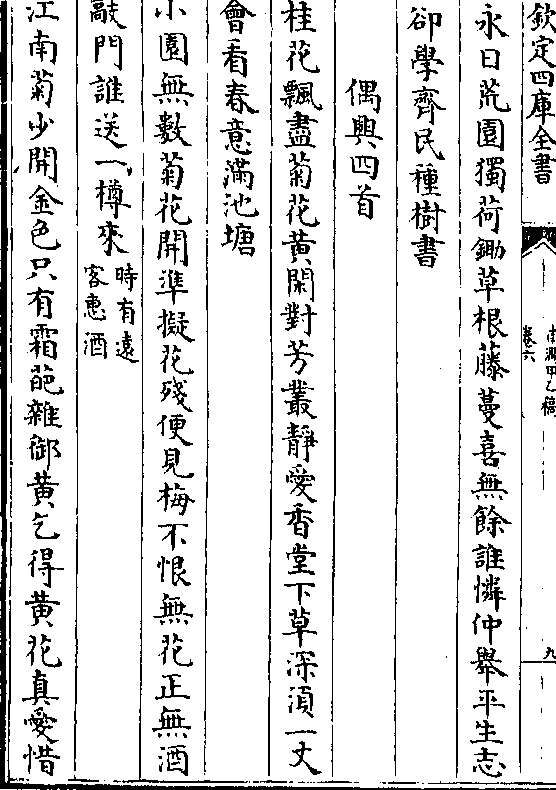 欽定四庫全書
南澗甲乙稿
卷六
九
永日荒園獨荷鋤草根藤蔓喜無餘誰憐仲舉平生志
卻學齊民種樹書
偶興四首
桂花飄盡菊花黄閑對芳叢靜愛香堂下草深須一丈
會看春意滿池塘
小園無數菊花開準擬花殘便見梅不恨無花正無酒
敲門誰送一樽來時有遠
客惠酒
江南菊少開金色只有霜葩雜御黄乞得黄花真愛惜